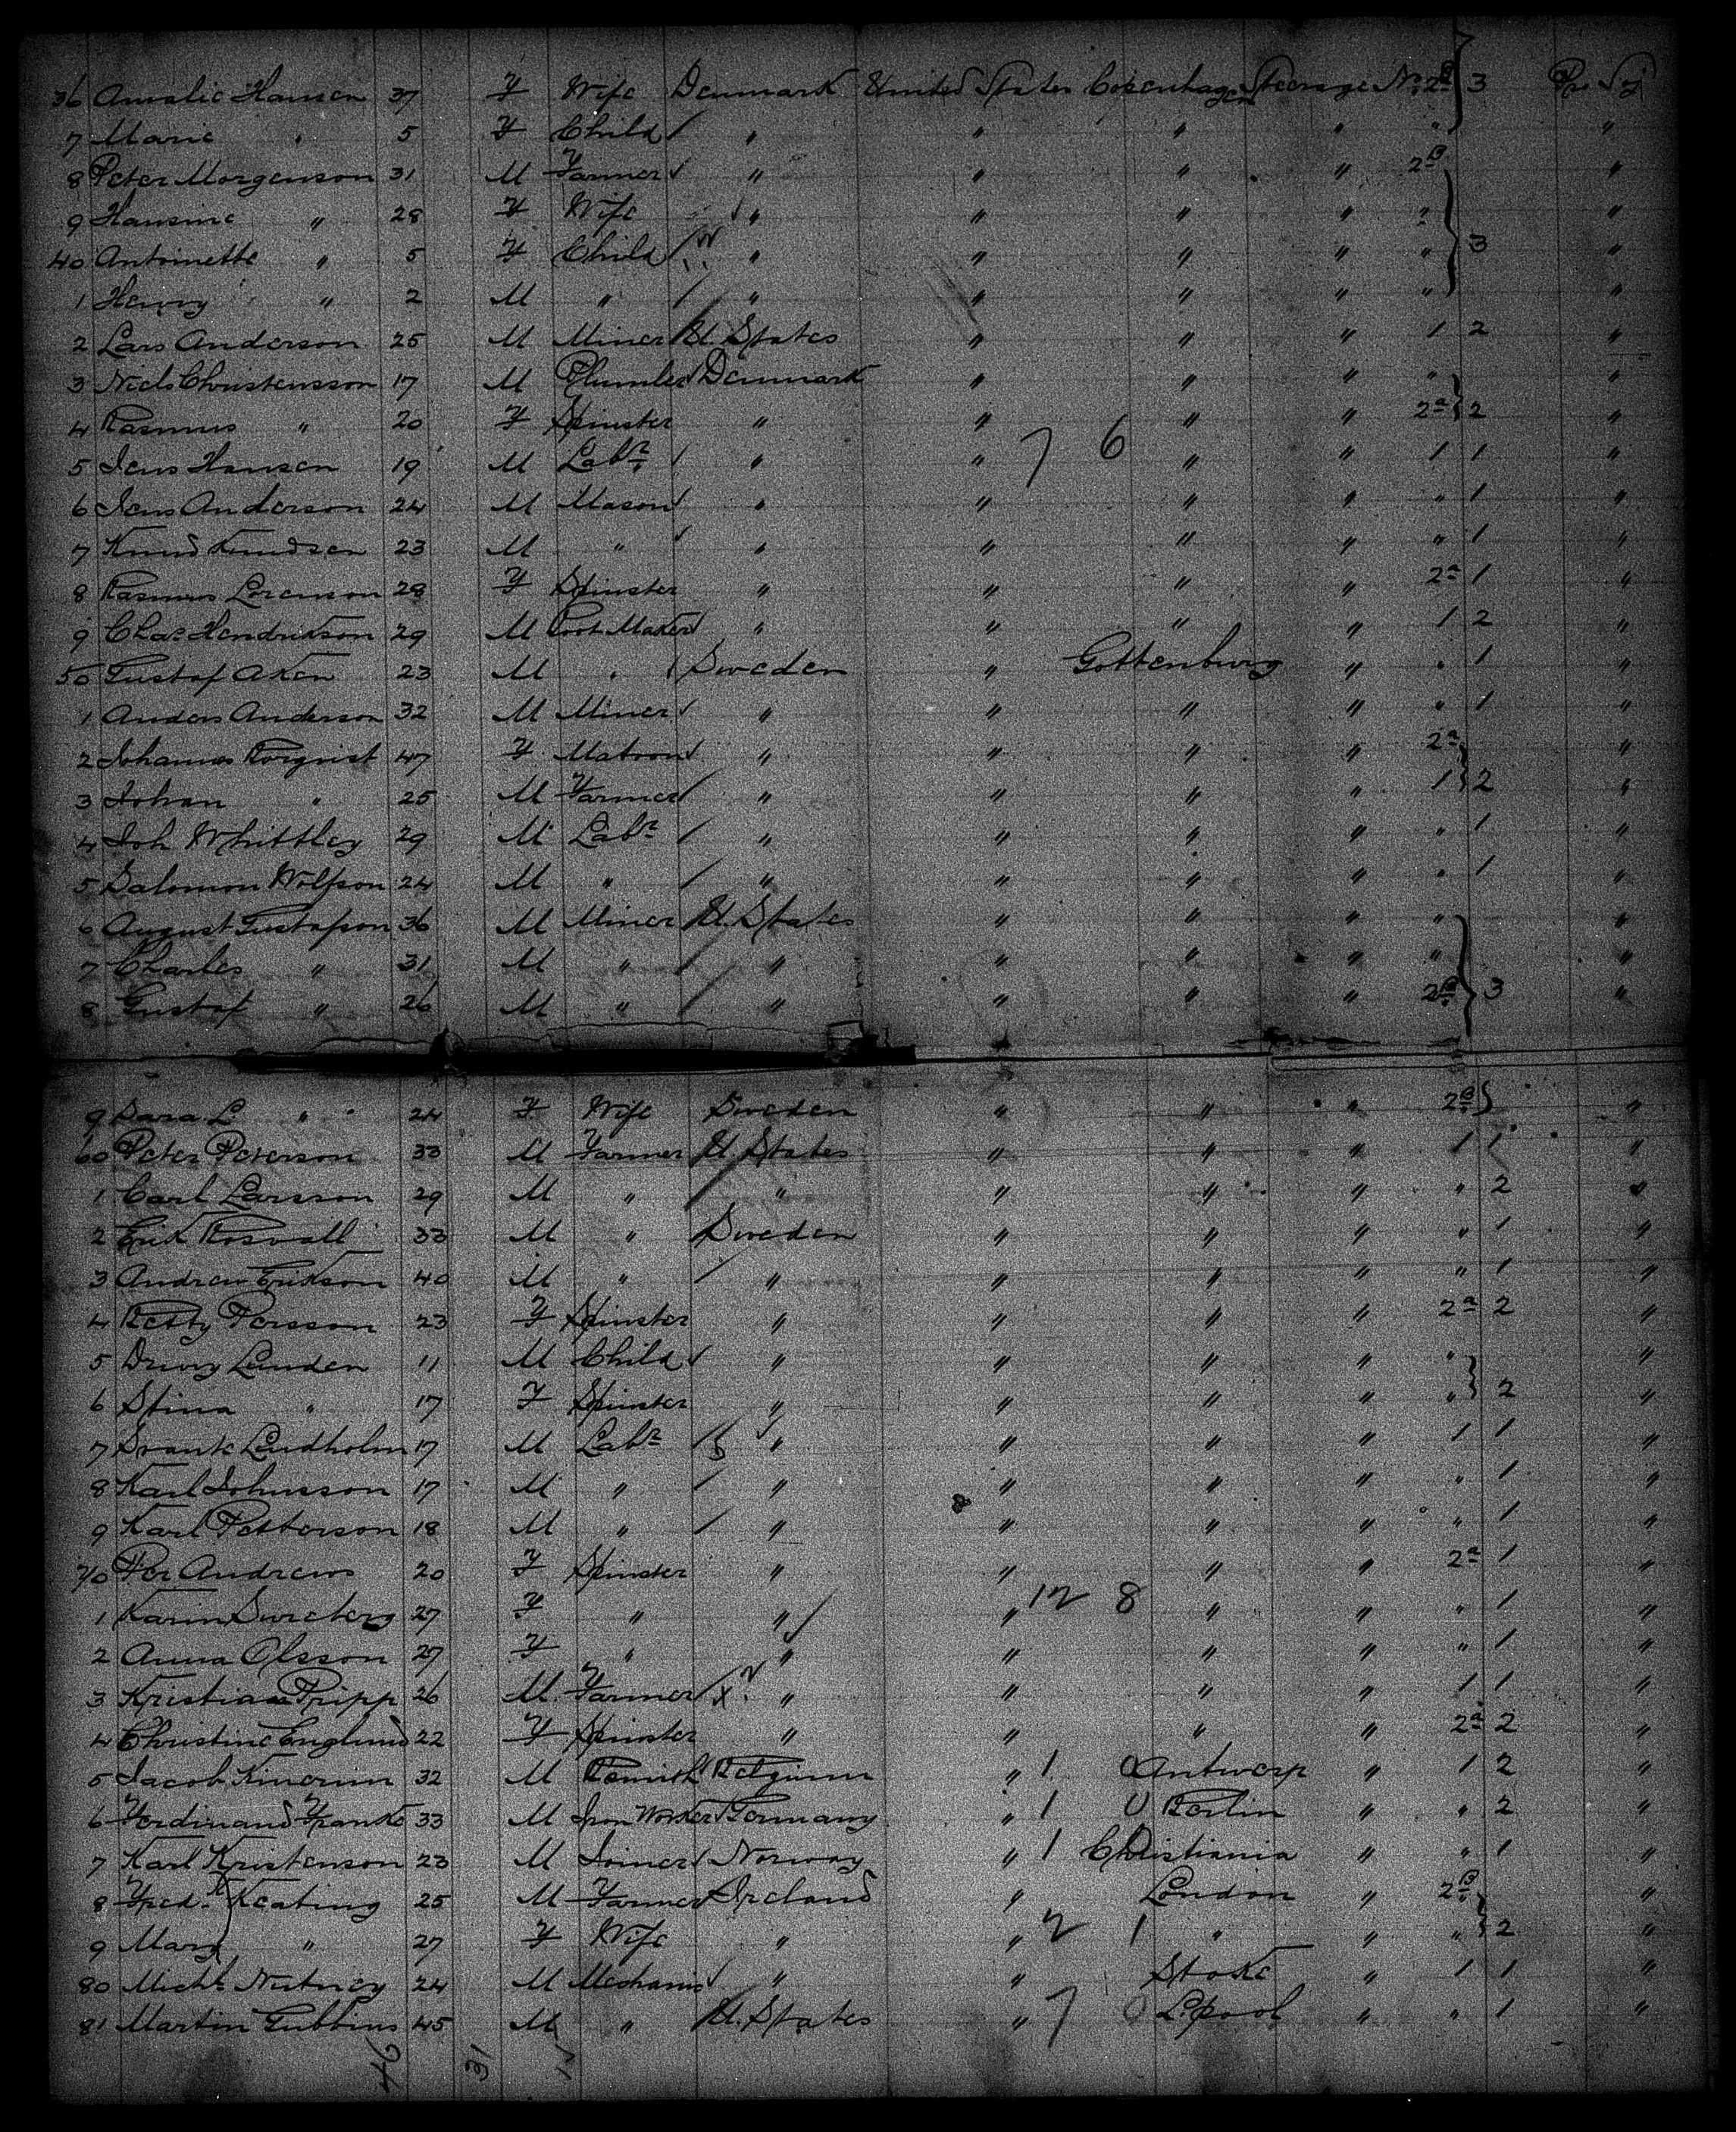 36 Amalie Hansen 37 F Wife Denmark United States Copenhagen Steerage No. 2B 3 Pr. Sj
7 Marie " 5 F Child " " " " " "
8 Peter Morgenson 31 M Farmer " " " " 2B "
9 Hansine " 28 F Wife " " " " " "
40 Antoinette " 5 F Child " " " " " 3 "
1 Henry " 2 M " " " " " " "
2 Lars Anderson 25 M Miner U. States " " " 1 2 "
3 Niels Christensson 17 M Plumber Denmark " " " " "
4 Rasmus " 20 F Spinster " " " " 2a 2 "
7 6
5 Jens Hansen 19 M Labr " " " " 1 1 "
6 Jens Anderson 24 M Mason " " " " " 1 "
7 Knud Knudsen 23 M " " " " " " 1 "
8 Rasmus Lorenson 28 F Spinster " " " " 2a 1 "
9 Chas Hendrikson 29 M Boot Maker " " " " 1 2 "
50 Gustaf Aken 23 M " Sweden " Gottenburg " " 1 "
1 Anders Anderson 32 M Miner " " " " " 1 "
2 Johannes Rorqvist 47 F Matron " " " " 2a "
3 Johan " 25 M Farmer " " " " 1 2 "
4 Joh Whittley 29 M Labr " " " " " 1 "
5 Salomon Wolfson 24 M " " " " " " 1 "
6 August Gustafson 36 M Miner U. States " " " " "
7 Charles " 31 M " " " " " " "
8 Gustaf " 26 M " " " " " 2B 3 "
9 Sara L. " 24 F Wife Sweden " " " 2B "
60 Peter Peterson 33 M Farmer U. States " " " 1 1 "
1 Carl Larsson 29 M " " " " " " 2 "
2 Erik Rosvall 33 M " Sweden " " " " 1 "
3 Andrew Erikson 40 M " " " " " " 1 "
4 Betty Persson 23 F Spinster " " " " 2a 2 "
5 Linden 11 M Child " " " " " "
6 Stina " 17 F Spinster " " " " " 2 "
7 Lindholm 17 M Labr " " " " 1 1 "
8 Karl Johnsson 17 M " " " " " " 1 "
9 Karl Petterson 18 M " " " " " " 1 "
70 Per Andrews 20 F Spinster " " " " 2a 1 "
12 8
1 Karin 27 F " " " " " " 1 "
2 Anna Olsson 27 F " " " " " " 1 "
3 Kristian Pripp 26 M Farmer " " " " 1 1 "
4 Christine Englund 22 F Spinster " " " " 2a 2 "
5 Jacob 32 M Belgium " 1 0 Antwerp " 1 2 "
6 Ferdinand Franke 33 M Iron Worker Germany " 1 0 Berlin " " 2 "
7 Karl Kristenson 23 M Joiner Norway " 1 Christiania " " 1 "
8 Fred. Keating 25 M Farmer Ireland " London " 2B "
9 Mary " 27 F Wife " " 2 1 " " " 2 "
80 Michl 24 M Mechanic " " Stoke " 1 1 "
81 Martin Gibbins 45 M " U. States " 7 0 L.pool " " 1 "
46 31